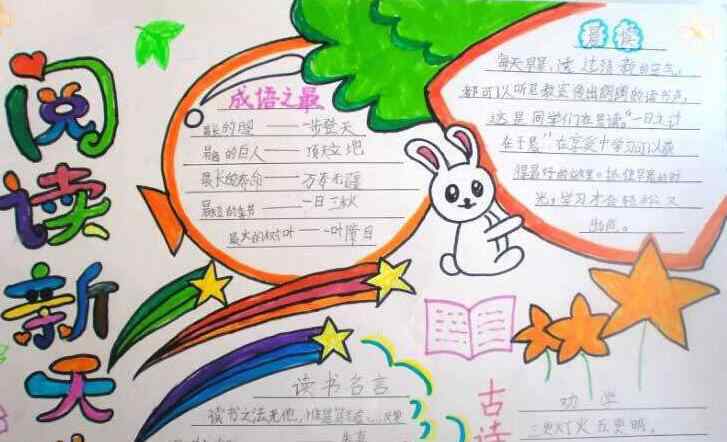 阅读新天
成语之最
最长的腿——一步登天
的巨人——顶天立地
最长的寿命——万寿无疆
最短的季节——一日三秋
最大的树叶——一叶障目
晨读
每天早晨,
都可以听见教室传出朗朗的读书声,
这是同学们在晨读。"一日之计
在于晨"在享受中学习可以获
得最好的效果。抓住早晨的时
光,学习才会轻松又
读书名言
读书之法无他,
朱熹
古诗
劝学
三更灯火五更鸡。